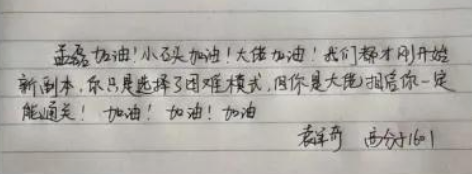 孟磊加油！小石头加油！大佬加油！我们都才刚开始
新副本，你只是选择了困难模式，但你是大佬相信你一定
能通关！加油！加油！加油
袁洋奇 高分子1601